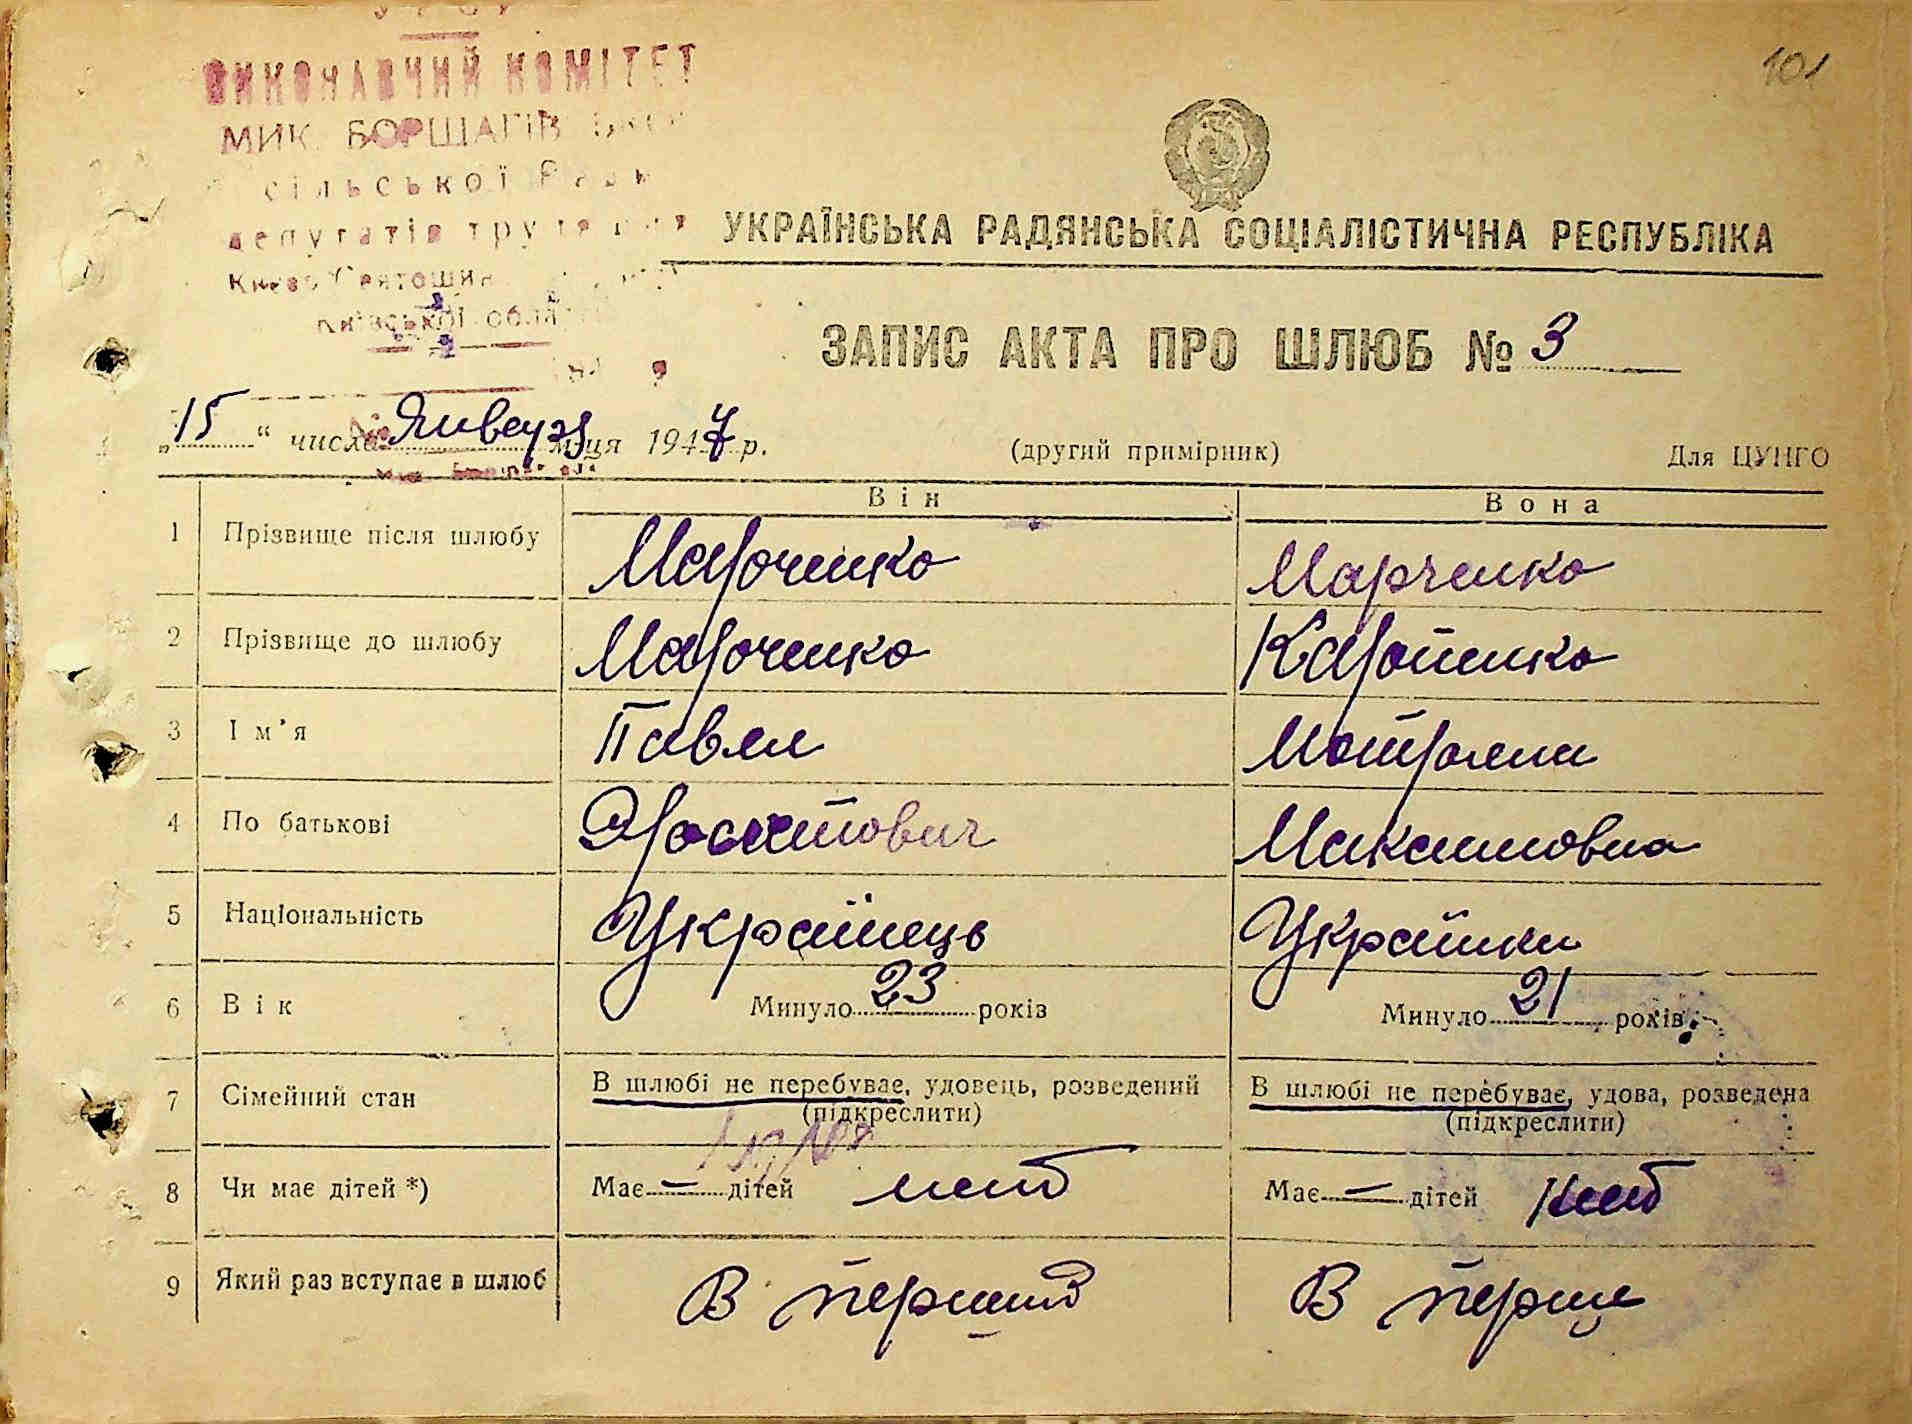 101
ВИКОНАВЧИЙ КОМІТЕТ
МИК. БОРЩАГІВ
сільської Ради
депутатів трудящих
Києво-Святошин
Київської обла
УКРАЇНСЬКА РАДЯНСЬКА СОЦІАЛІСТИЧНА РЕСПУБЛІКА
ЗАПИС АКТА ПРО ШЛЮБ № 3
„15“ числа Января м-ця 1947 р. (другий примірник) Для ЦУНГО
Він Вона
1 Прізвище після шлюбу Марченко Марченко
2 Прізвище до шлюбу Марченко
3 Ім'я Павел Мотрона
4 По батькові Максимовна
5 Національність Українець Українка
6 Вік Минуло 23 років Минуло 21 років
7 Сімейний стан В шлюбі не перебуває, удовець, розведений В шлюбі не перебуває, удова, розведена
(підкреслити) (підкреслити)
8 Чи має дітей *) Має — дітей нет Має — дітей нет
9 Який раз вступає в шлюб В первый В перше